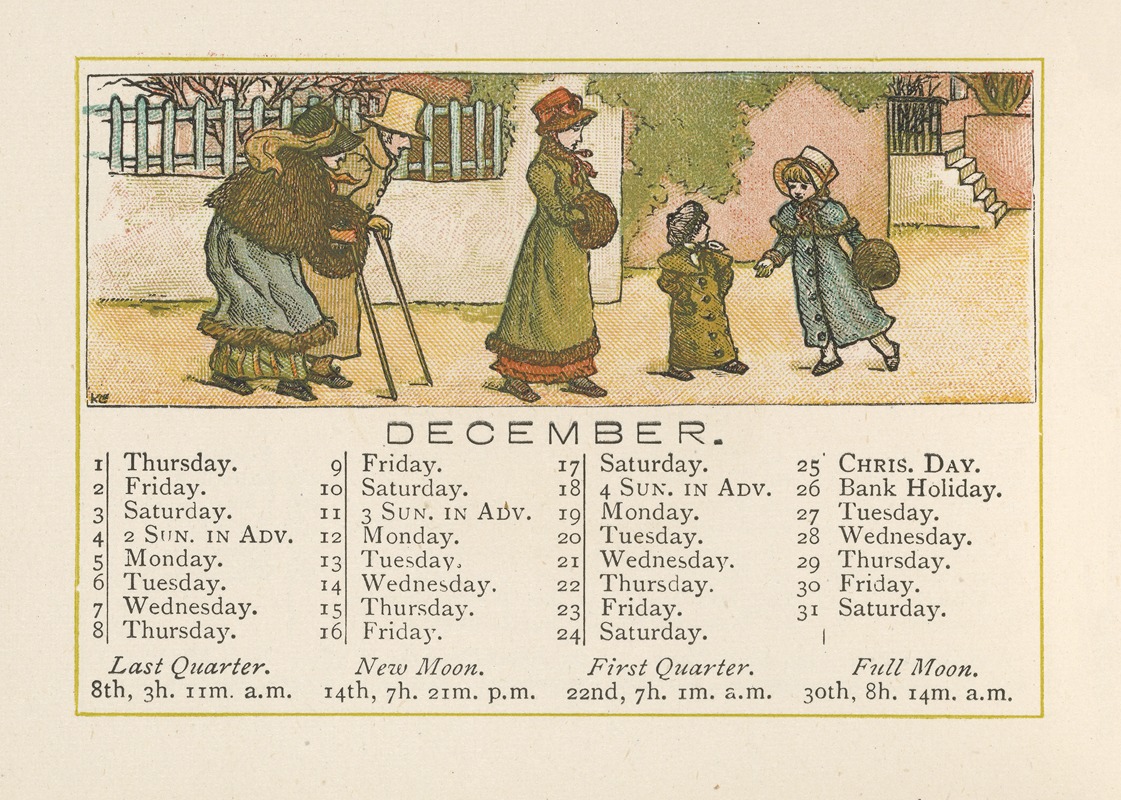 KG
DECEMBER.
1 Thursday.
2 Friday.
3 Saturday.
4 2 SUN. IN ADV.
5 Monday.
6 Tuesday.
7 Wednesday.
8 Thursday.
9 Friday.
10 Saturday.
11 3 SUN. IN ADV.
12 Monday.
13 Tuesday.
14 Wednesday.
15 Thursday.
16 Friday.
17 Saturday.
18 4 SUN. IN ADV.
19 Monday.
20 Tuesday.
21 Wednesday.
22 Thursday.
23 Friday.
24 Saturday.
25 CHRIS. DAY.
26 Bank Holiday.
27 Tuesday.
28 Wednesday.
29 Thursday.
30 Friday.
31 Saturday.
Last Quarter.
8th, 3h. 11m. a.m.
New Moon.
14th, 7h. 21m. p.m.
First Quarter.
22nd, 7h. 1m. a.m.
Full Moon.
30th, 8h. 14m. a.m.